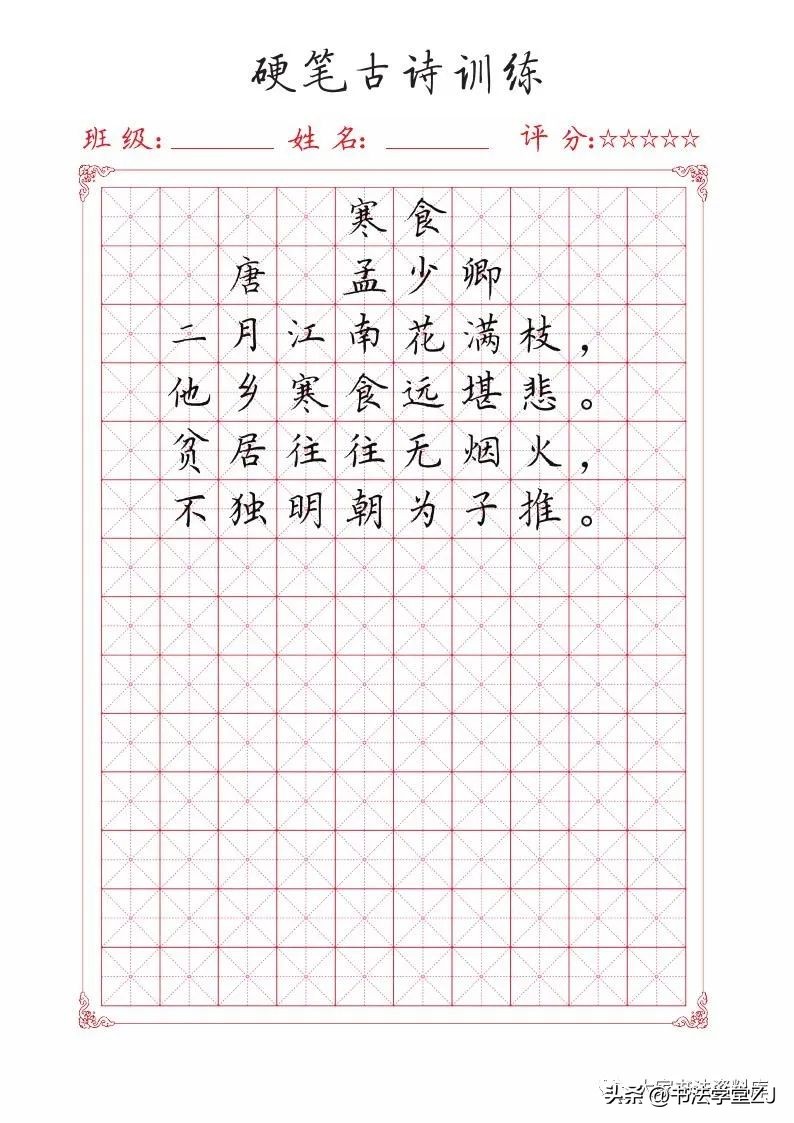 硬笔古诗训练
班级: 姓名: 评分:☆☆☆☆☆
寒食
唐 孟少卿
二月江南花满枝，
他乡寒食远堪悲。
贫居往往无烟火，
不独明朝为子推。
大家书法资料库
头条@书法学堂ZJ